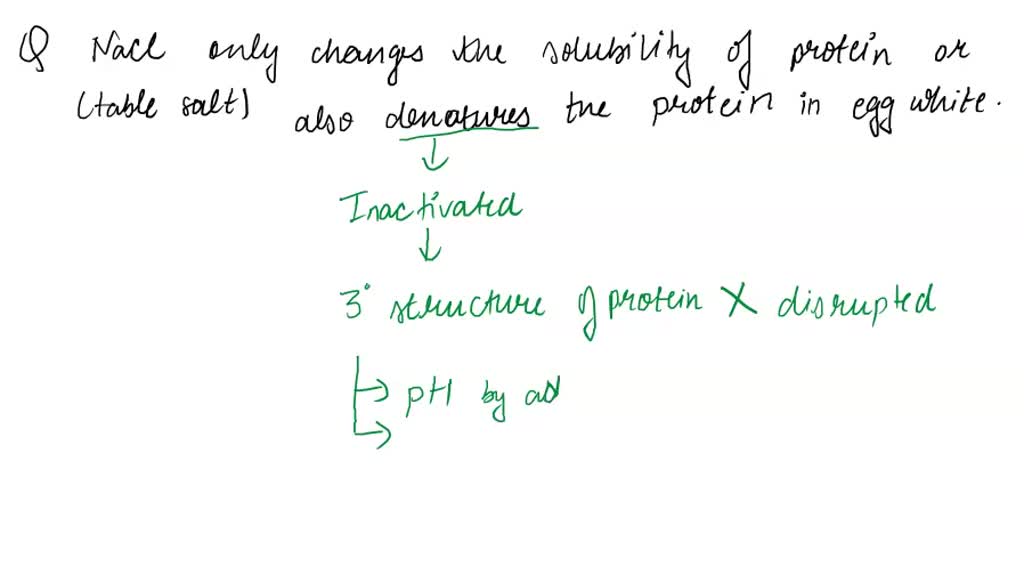 Q NaCl only changes the solubility of protein or
(table salt) also denatures the protein in egg white.
Inactivated
3° structure of protein X disrupted
pH by ad